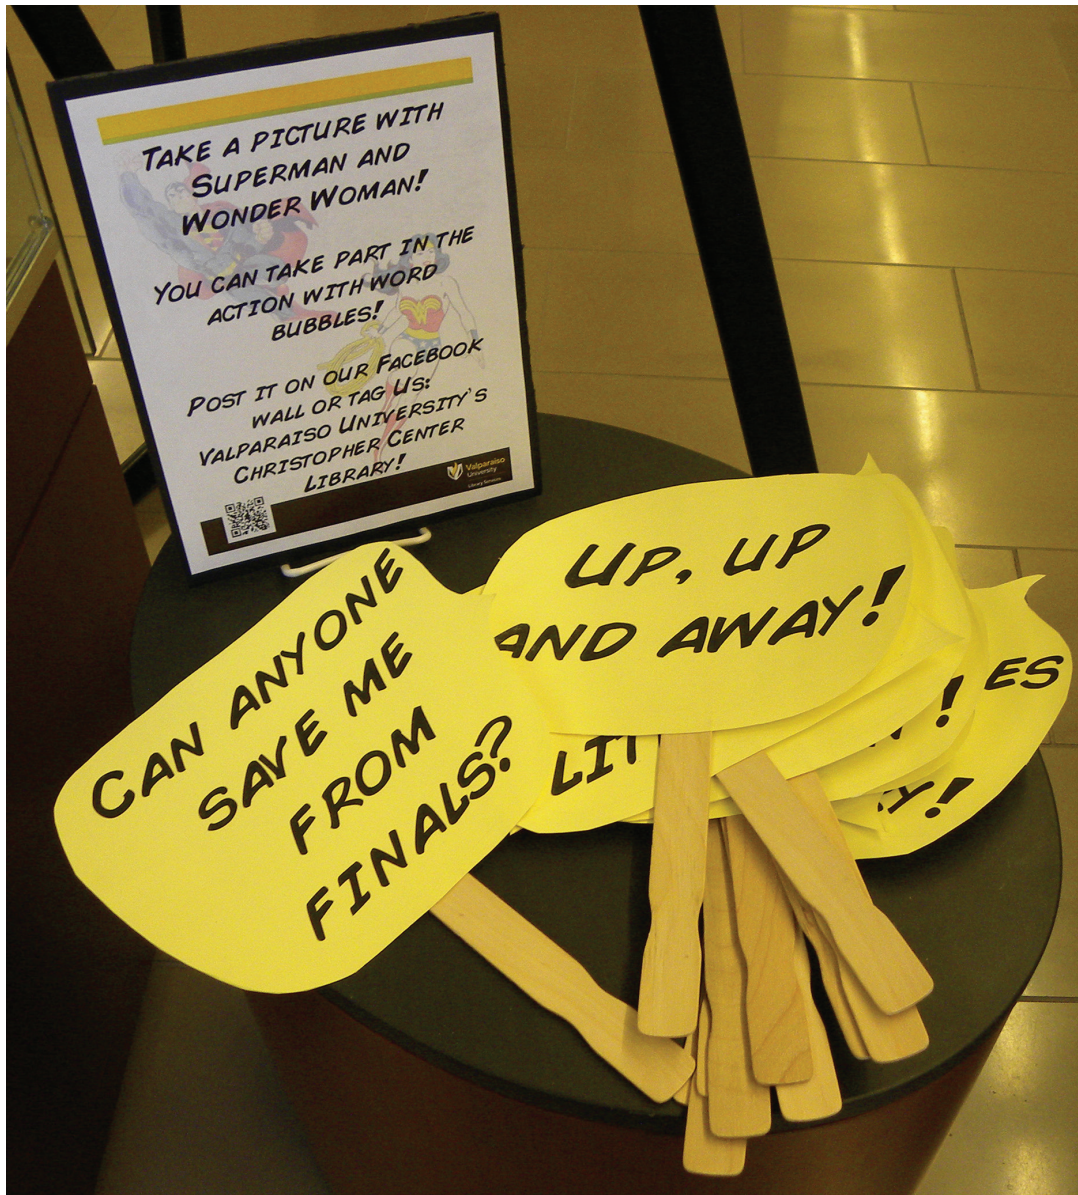 TAKE A PICTURE WITH
SUPERMAN AND
WONDER WOMAN!
YOU CAN TAKE PART IN THE
ACTION WITH WORD
BUBBLES!
POST IT ON OUR FACEBOOK
WALL OR TAG US:
VALPARAISO UNIVERSITY'S
CHRISTOPHER CENTER
LIBRARY!
Valparaiso
University
Library Services
UP, UP
AND AWAY!
CAN ANYONE
SAVE ME
FROM
FINALS?
ES
LIT
!
!